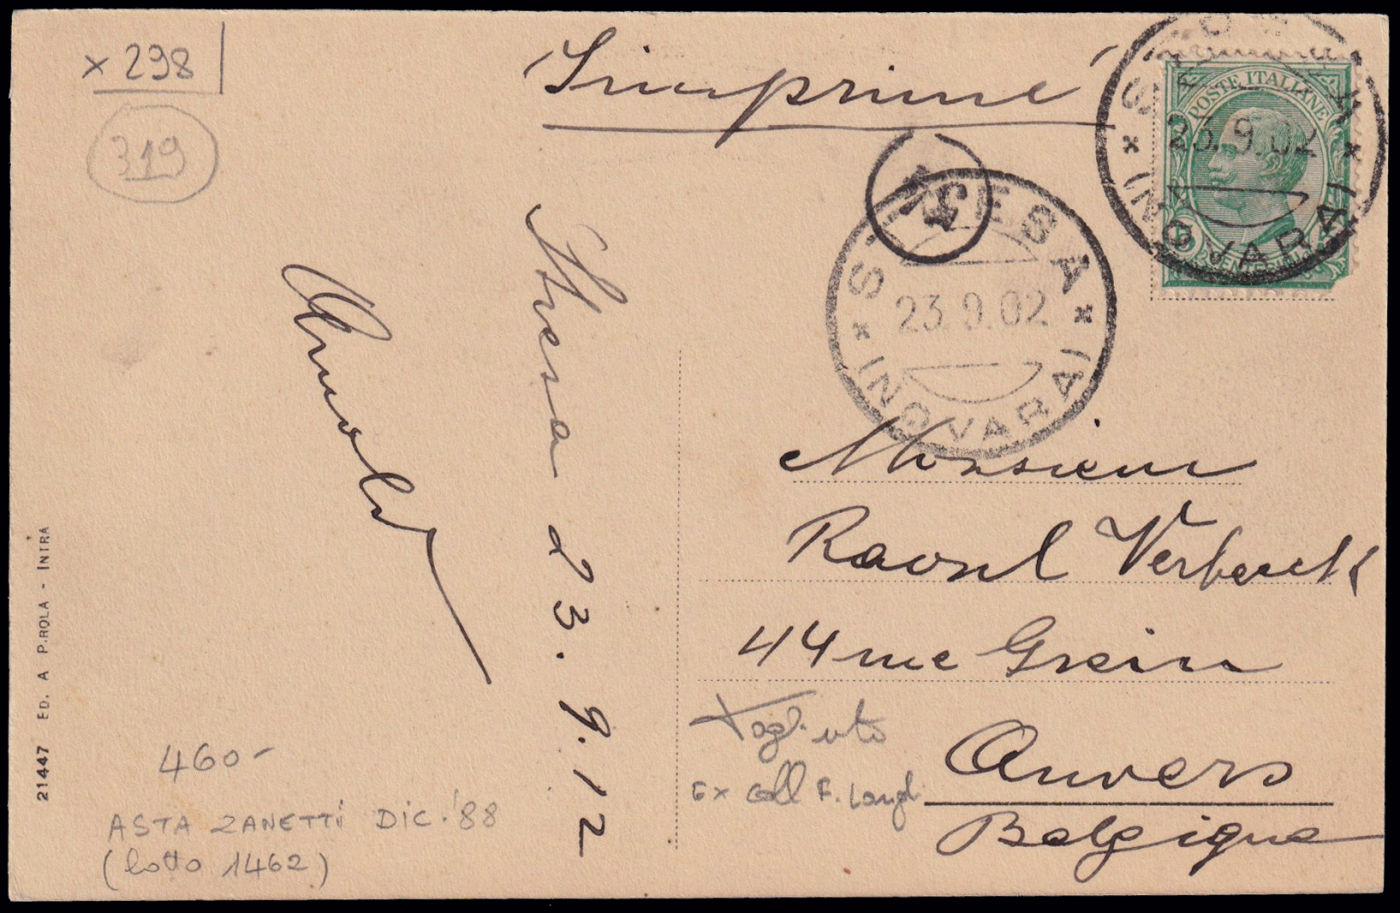 x 298
319
Imprimé
STRESA
23.9.02
(NOVARA)
POSTE ITALIANE
STRESA
23.9.02
(NOVARA)
Stresa 23.9.12
Arnold
Monsieur
Raoul Verbeeck
44 rue
Anvers
Belgique
Tagliato
Ex Coll F.
460-
ASTA ZANETTI DIC. '88
(lotto 1462)
21447 ED. A P.ROLA - INTRA